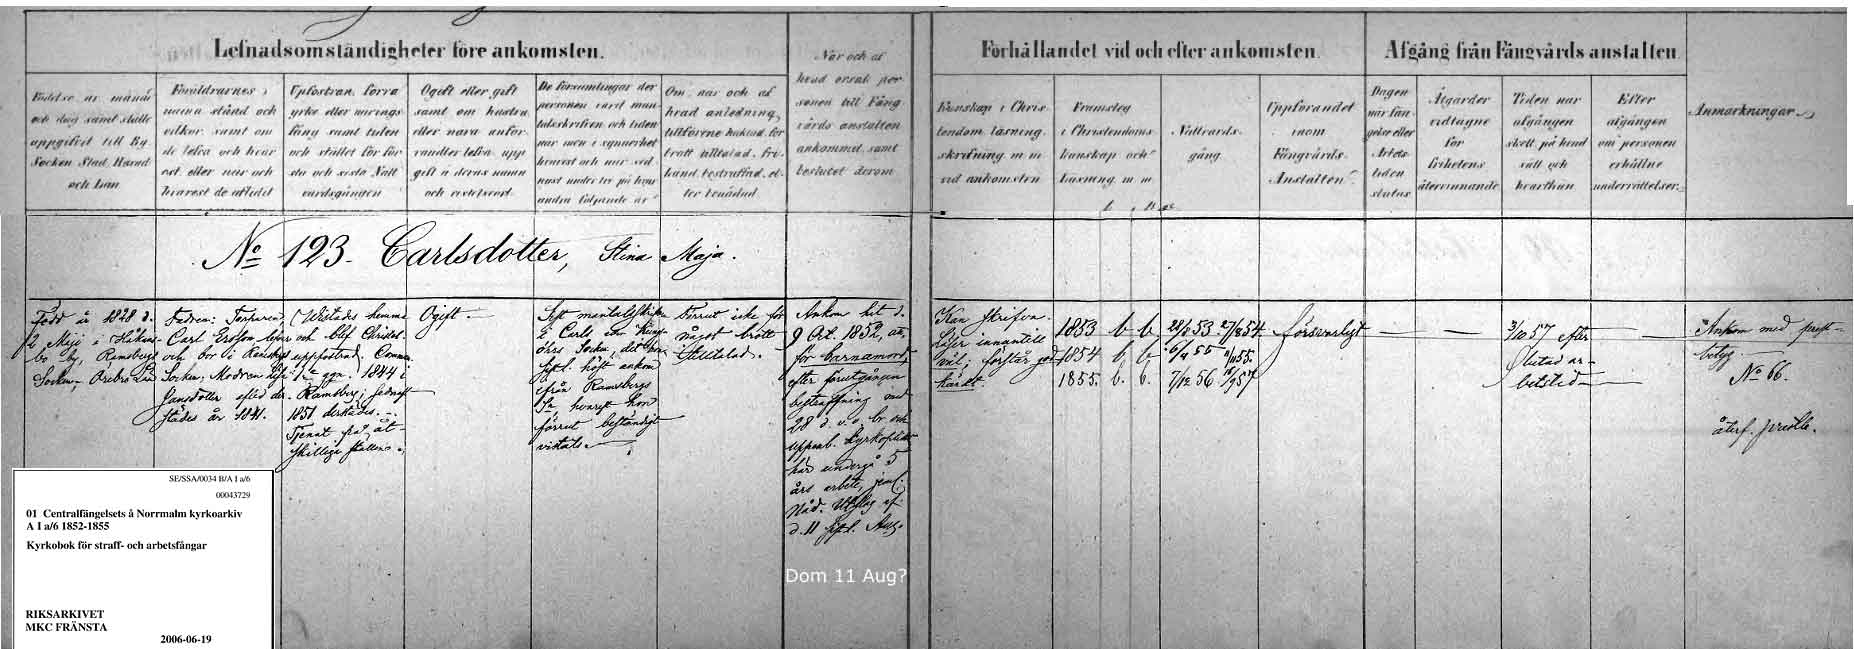 Lefnadsomständigheter före ankomsten.
Förhållandet vid och efter ankomsten.
Afgång från Fångvårds anstalten.
Födelse år, månad
och dag samt ställe
uppgifvit till By,
Socken, Stad, Härad
och Län
Föräldrarnes
namn stånd och
vilkor, samt om
de lefva och hvar
est, eller när och
hvarest de aflidit
Uppfostran, förra
yrke eller närings
fång samt tiden
och stället för för
sta och sista Natt
vardsgången
Ogift eller gift
samt om hustru
eller nära anför
vandter lefva, upp
gift å deras namn
och vistelseort
De församlingar der
personen varit man
talsskrifven och tiden
när men i synnerhet
hvarest och når sed
nast under tre på hvar
andra följande år
Om, när och af
hvad anledning,
tillförene häktad, för
brott tilltalad, fri
känd, bestraffad, el-
ler benådad
När och af
hvad orsak per
sonen till Fång
vårds anstalten
ankommit, samt
beslutet derom
Kunskap i Chris
tendom, läsning,
skrifning m. m
vid ankomsten
Framsteg
i Christendoms
kunskap och
läsning m. m
Nattvards-
gång.
Uppförandet
inom
Fångvårds-
Anstalten
Dagen
när fån-
gelse eller
Arbets
tiden
slutas
Åtgärder
vidtagne
för
frihetens
återvinnande
Tiden när
afgången
skett, på hvad
sätt och
hvarthän
Efter
afgången
om personen
erhållne
underrättelser.
Anmärkningar.
No 123. Carlsdotter, Stina Maja.
Född år 1828 d.
2 Maji i Håkans-
bo by, Ramsbergs
Socken, Örebro Län
Fadren:
Carl Ersson lefver
och bor i
Socken; Modren
Jansdotter afled der-
städes år 1841.
Wistades hemma
och blef Christel.
uppfostrad.
1sta ggn. 1844 i
Ramsberg, sednast
1851 derstädes.
Tjenat på åt-
skilliga ställen.
Ogift.
Sist mantalsskrifven
i Carls
Socken, det
Sept. höst ankom
ifrån Ramsbergs
Sn, hvarest hon
förrut beständigt
vistats.
Förrut icke för
något brott
tilltalad.
Ankom hit d.
9 Oct. 1852, att,
för barnamord,
efter förutgången
bestraffning med
28 d. v. o. br. och
uppenb. kyrkoplikt
här undergå 5
års arbete, jeml.
Nåd. Utslag af
d. 11 Sept. Aug.
Kan skrifva.
Läser innantill
väl; förstår god
1853 b. b.
1854 b. b.
1855. b. b.
7/12 56
försvarligt
3/10 57 efter
slutad ar-
betstid
Ankom med prest-
betyg.
No 66.
återf.
Dom 11 Aug?
SE/SSA/0034 B/A I a/6
00043729
01 Centralfängelsets å Norrmalm kyrkoarkiv
A I a/6 1852-1855
Kyrkobok för straff- och arbetsfångar
RIKSARKIVET
MKC FRÄNSTA
2006-06-19